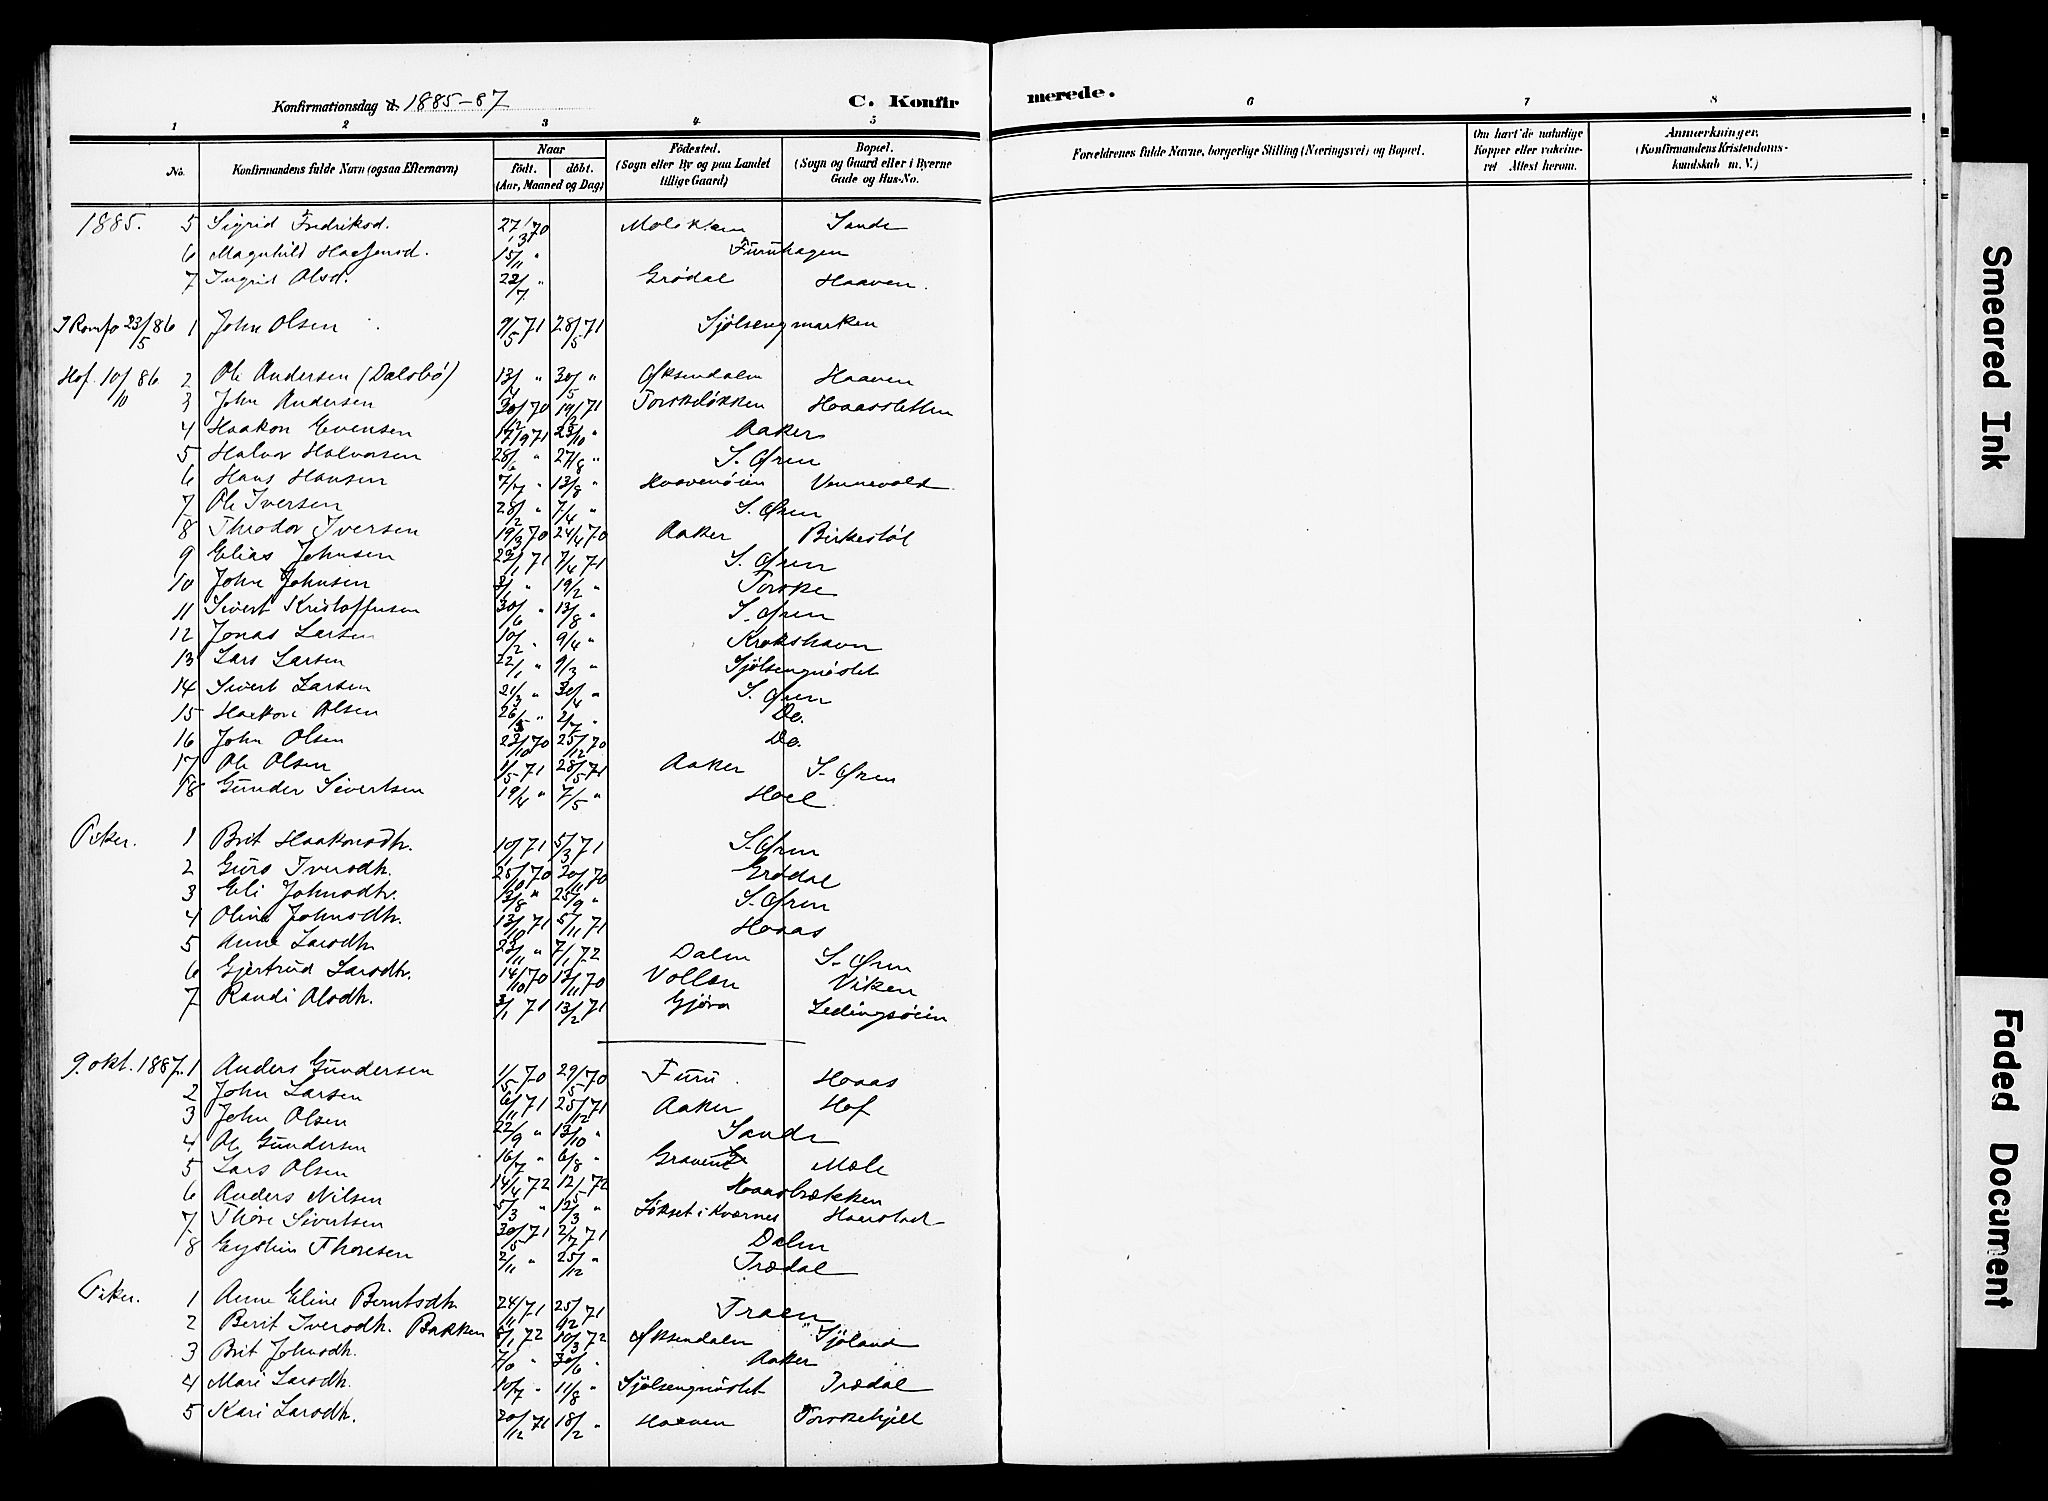 Konfirmationsdag d. 1885-87
C. Konfirmerede.
1 2 3 4 5 6 7 8
No.
Konfirmandens fulde Navn (ogsaa Efternavn)
Naar
født. døbt.
(Aar, Maaned og Dag)
Fødested.
(Sogn eller By og paa Landet
tillige Gaard)
Bopæl.
(Sogn og Gaard eller i Byerne
Gade og Hus-No.
Forældrenes fulde Navne, borgerlige Stilling (Næringsvei) og Bopæl.
Om havt de naturlige
Kopper eller vakcine-
ret Attest herom.
Anmærkninger.
(Konfirmandens Kristendoms-
kundskab m. V.)
1885. 5 Sigrid Fredriksd. 27/3 70 Sande
6 Magnhild 15/11 " Furuhagen
7 Ingrid Olsd. 22/7 " Grødal Haaven.
I Romfo 23/5 86 1 John Olsen 9/5 71 28/5 71 Sjølsengmarken
Hof. 10/10 86 2 Ole Andersen (Dalsbø) 13/1 " 30/5 " Øksendalen Haaven
3 John Andersen 30/12 70 19/2 71 Torskeløkken Haassletten
4 Haakon Evensen 17/9 71 23/10 " Aaker
5 Halvor Halvorsen 28/6 " 27/8 " S. Øren
6 Hans Hansen 7/7 " 13/8 " Haavenøien Vennevold
7 Ole Iversen 28/2 " 7/4 " S. Øren
8 Theodor Iversen 19/3 70 24/4 70 Aaker Birkestøl
9 Elias Johnsen 23/1 71 7/4 71 S. Øren
10 John Johnsen 3/1 " 19/2 " Torske
11 Sivert Kristoffersen 30/6 " 13/8 " S. Øren
12 Jonas Larsen 10/2 " 9/4 " Krokshavn
13 Lars Larsen 22/1 " 9/3 " Sjølsengnøstet
14 Sivert Larsen 21/3 " 30/4 " S. Øren
15 Haakon Olsen 26/5 " 2/7 " Do.
16 John Olsen 23/10 70 25/12 70 Do.
17 Ole Olsen 1/5 71 28/5 71 Aaker S. Øren
18 Gunder Sivertsen 19/4 " 7/5 " Hoel
Piker. 1 Brit Haakonsdtr. 10/1 71 5/3 71 S. Øren
2 Guro Iversdtr. 25/10 70 20/11 70 Grødal
3 Eli Johnsdtr. 13/8 " 25/9 " S. Øren
4 Oline Johnsdtr. 13/10 71 5/11 71 Haas
5 Anne Larsdtr. 23/11 " 7/1 72 Dalen S. Øren
6 Gjertrud Larsdtr. 14/10 70 13/11 70 Vollan Viken
7 Randi Olsdtr. 3/1 71 13/2 71 Gjøra Ledingsøien
9. okt. 1887. 1 Anders Gundersen 1/5 70 29/5 70 Furu Haas
2 John Larsen 6/11 71 25/12 71 Aaker Hof
3 John Olsen 22/9 " 13/10 " Sande
4 Ole Gundersen 16/7 " 6/8 " Mæle
5 Lars Olsen 14/4 72 12/5 72 Haasbrækken
6 Anders Nilsen 5/3 " 12/3 "
7 Thore Sivertsen 30/5 71 2/7 71 Dalen
8 Eystein Thoresen 2/11 " 25/12 " Trædal
Piker. 1 Anne Eline Berntsdtr. 24/11 71 25/12 71 Traen
2 Berit Iversdtr. Bakken 5/1 72 10/3 72 Øksendalen Sjøland
3 Brit Johnsdtr. 30/6 " Aaker
4 Mari Larsdtr. 10/7 " 11/8 " Sjølsengnøstet Trædal
5 Kari Larsdtr. 20/12 71 18/2 " Haaven Torskehjell
Smeared Ink
Faded Document